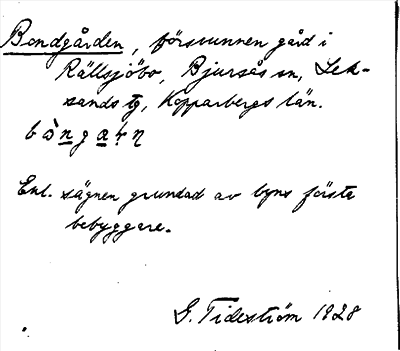 Bondgården, försvunnen gård i
Rällsjöbo, Bjursås sn, Lek-
sands tg, Kopparbergs län.
Enl. sägnen grundad av byns förste
bebyggare.
G. Tideström 1928